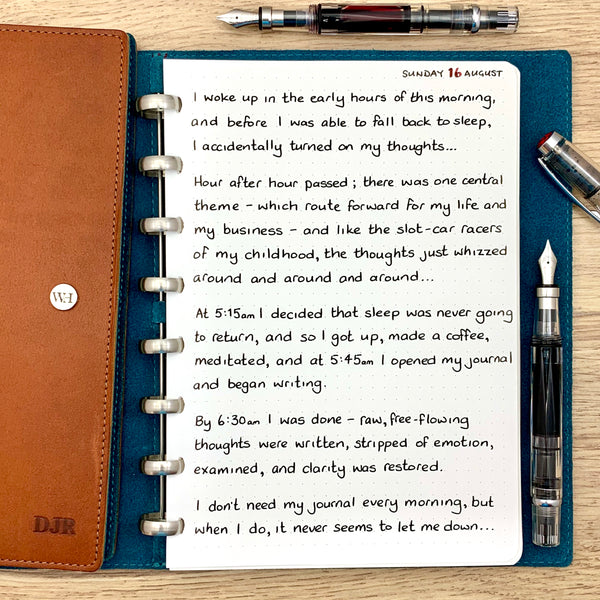 SUNDAY 16 AUGUST
I woke up in the early hours of this morning,
and before I was able to fall back to sleep,
I accidentally turned on my thoughts...
Hour after hour passed; there was one central
theme – which route forward for my life and
my business – and like the slot-car racers
of my childhood, the thoughts just whizzed
around and around and around...
At 5:15am I decided that sleep was never going
to return, and so I got up, made a coffee,
meditated, and at 5:45am I opened my journal
and began writing.
By 6:30am I was done – raw, free-flowing
thoughts were written, stripped of emotion,
examined, and clarity was restored.
I don't need my journal every morning, but
when I do, it never seems to let me down...
WH
DJR